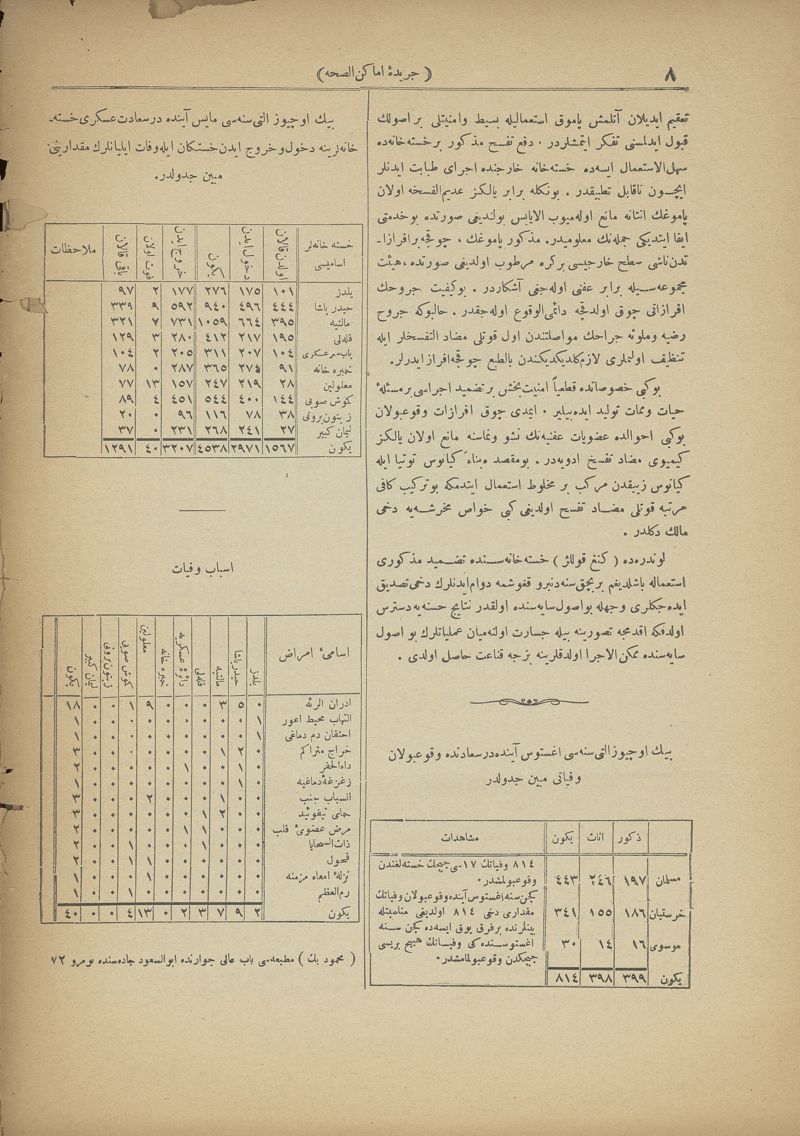 ٨
( جريدهٔ اماكن الصحه )
تعقيم ايديلان آتلمش پاموق استعماليله بسيط وامنيتلى بر اصولك
قبول ايدلسنى تفكر ايتمشلردر ٠ دفع تفسخ مذكور بر خسته‌خانه‌ده
سهل الاستعمال ايسه‌ده خسته‌خانه خارجنده اجراى طبابت ايدنلر
ايچــون ناقابل تطبيقدر . بونكله برابر يالكز عديم الفسخه اولان
پاموغك انتانه مانع اوله‌ميوب الايابس بولنديغى صورتده بوخدمتى
ايفا ايتديكى جمله‌نك معلوميدر. مذكور پاموغك ، چوقجه برافرازا-
تدن ناشى سطح خارجيسى بركره مرطوب اولديغى صورتده ، هيئت
مجموعه‌ســيله برابر عفنى اوله‌جغى آشكاردر . بوكيفيت جروحك
افرازاتى چوق اولدقجه دائمى الوقوع اوله‌جقدر . حالبوكه جروح
رضيه وملوثه جراحك مواصلتندن اول قوتلى مضاد التفسخلر ايله
تنظيف اولنملرى لازم‌كلديكديكندن بالطبع چوقجه افراز ايدرلر.
بوكبى خصوصاتده قطعياً امنيت‌بخش بر تضميد اجراسى بر مسئلهٔ
حيات وممات توليد ايده‌بيلير ٠ ايمدى چوق افرازات وقوعبولان
بوكبى احوالده عضويات عفنيه‌نك نشو ونماسنه مانع اولان يالكز
كيميوى مضاد تفسخ ادويه‌در . بومقصد مبناءً كيانوس توتيا ايله
كيانوس زيبقدن مركب بر مخلوط استعمال ايتدمكه بوتركيب كافى
مرتبه قوتلى مضــاد تفسخ اولديغى كبى خواص مخرشــه‌يه دخى
مالك دكلدر .
لوندره‌ده ( كنغ قوللژ ) خسته‌خانه‌ســنده تضــميد مذكورى
استعماله باشلديغم بر بچق سنه‌دنبرو قغوشمه دوام ايدنلرك دخى تصديق
ايده‌جكلرى وجهله بواصول سايه‌سنده اولقدر نتايج حسنه‌يه دسترس
اولدمكه اقدمجه تصورينه بيله جسارت اولنه‌ميان عملياتلرك بو اصول
سايه‌سنده ممكن الاجرا اولدقلرينه بزجه قناعت حاصل اولدى .
بيك اوچيوز التى سنه‌سى اغستوس آينده درسعادتده وقوعبولان
وفياتى مبين جدولدر
ذكور اناث يكون مشاهدات
مسلمان ١٩٧ ٢٤٦ ٤٤٣
خرستيان ١٨٦ ١٥٥ ٣٤١
موسوى ١٦ ١٤ ٣٠
يكون ٣٩٩ ٣٩٨ ٨١٤
٨١٤ وفياتك ١٧سى چيچك خسته‌لغندن
وقوعبولمشدر٠
كچن سنه اغستوس آينده وقوعبولان وفياتك
مقدارى دخى ٨١٤ اولديغى مناسبتله
بينلرنده برفرق يوق ايسه‌ده كچن ســنه
اغستوســنده‌كى وفيــاتك هيچ بريسى
چيچكدن وقوعبولمامشدر٠
بيك اوچيوز التى سنه‌سى مايس آينده درسعادت عسكرى خسته-
خانه‌لرينه دخول وخروج ايدن خستكان ايله وفات ايليانلرك مقدارينى
مبين جدولدر.
خسته خانه‌لر اساميسى اولدن قالان دخول ايدن يكون خروج ايدن فوت اولان باقى قالان ملاحظات
يلدز ١٠١ ١٧٥ ٢٧٦ ١٧٧ ٢ ٩٧
حيدر پاشا ٤٤٤ ٤٩٦ ٩٤٠ ٥٩٢ ٩ ٣٣٩
مالتپه ٣٩٥ ٦٦٤ ١٠٥٩ ٧٣١ ٧ ٣٢١
قله‌لى ١٩٥ ٢١٧ ٤١٢ ٢٨٠ ٣ ١٢٩
باب سرعسكرى ١٠٤ ٢٠٧ ٣١١ ٢٠٥ ٢ ١٠٤
خمبره خانه ٩١ ٢٧٤ ٣٦٥ ٢٨٧ ٠ ٧٨
معلولين ٢٨ ٢١٩ ٢٤٧ ١٥٧ ١٣ ٧٧
كوش صويى ١٤٤ ٤٠٠ ٥٤٤ ٤٥١ ٤ ٨٩
زيتون برونى ٣٨ ٧٨ ١١٦ ٩٦ ٠ ٢٠
ليمان كبير ٢٧ ٢٤١ ٢٦٨ ٢٣١ ٠ ٣٧
يكون ١٥٦٧ ٢٩٧١ ٤٥٣٨ ٣٢٠٧ ٤٠ ١٢٩١
اسباب وفيات
اسامئ امراض يلدز حيدر پاشا مالتپه قله‌لى دائرهٔ عسكريه خمبره خانه معلولين كوش صويى زيتون برونى ليمان كبير يكون
ادران الرئه ٠ ٥ ٣ ٠ ٠ ٠ ٩ ١ ٠ ٠ ١٨
التهاب محيط اعور ١ ٠ ٠ ٠ ٠ ٠ ٠ ٠ ٠ ٠ ١
احتقان دم دماغى ١ ٠ ٠ ٠ ٠ ٠ ٠ ٠ ٠ ٠ ١
خراج متراكم ٠ ٢ ١ ٠ ٠ ٠ ٠ ٠ ٠ ٠ ٣
داءالحفر ٠ ١ ٠ ٠ ١ ٠ ٠ ٠ ٠ ٠ ٢
زعزعهٔ دماغيه ٠ ١ ٠ ٠ ٠ ٠ ٠ ٠ ٠ ٠ ١
انسباب جنب ٠ ٠ ١ ٠ ٠ ٠ ٢ ٠ ٠ ٠ ٣
حماى تيفوئيد ٠ ٠ ٢ ١ ٠ ٠ ٠ ٠ ٠ ٠ ٣
مرض عضوئ قلب ٠ ٠ ٠ ١ ١ ٠ ٠ ٠ ٠ ٠ ٢
ذات السحايا ٠ ٠ ٠ ١ ٠ ٠ ٠ ١ ٠ ٠ ٢
قحول ٠ ٠ ٠ ٠ ٠ ٠ ١ ١ ٠ ٠ ٢
نزلهٔ امعاء مزمنه ٠ ٠ ٠ ٠ ٠ ٠ ١ ٠ ٠ ٠ ١
رم العظم ٠ ٠ ٠ ٠ ٠ ٠ ٠ ١ ٠ ٠ ١
يكون ٢ ٩ ٧ ٣ ٢ ٠ ١٣ ٤ ٠ ٠ ٤٠
( محمود بك ) مطبعه‌سى باب عالى جوارنده ابوالسعود جاده‌سنده نومرو ٧٢